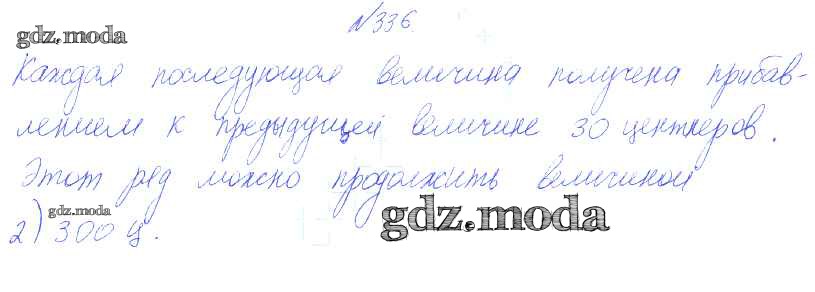 №336.
gdz.moda
Каждая последующая величина получена прибав-
лением к предыдущей величине 30 центнеров.
Этот ряд можно продолжить величиной
gdz.moda
2) 300 ц.
gdz.moda